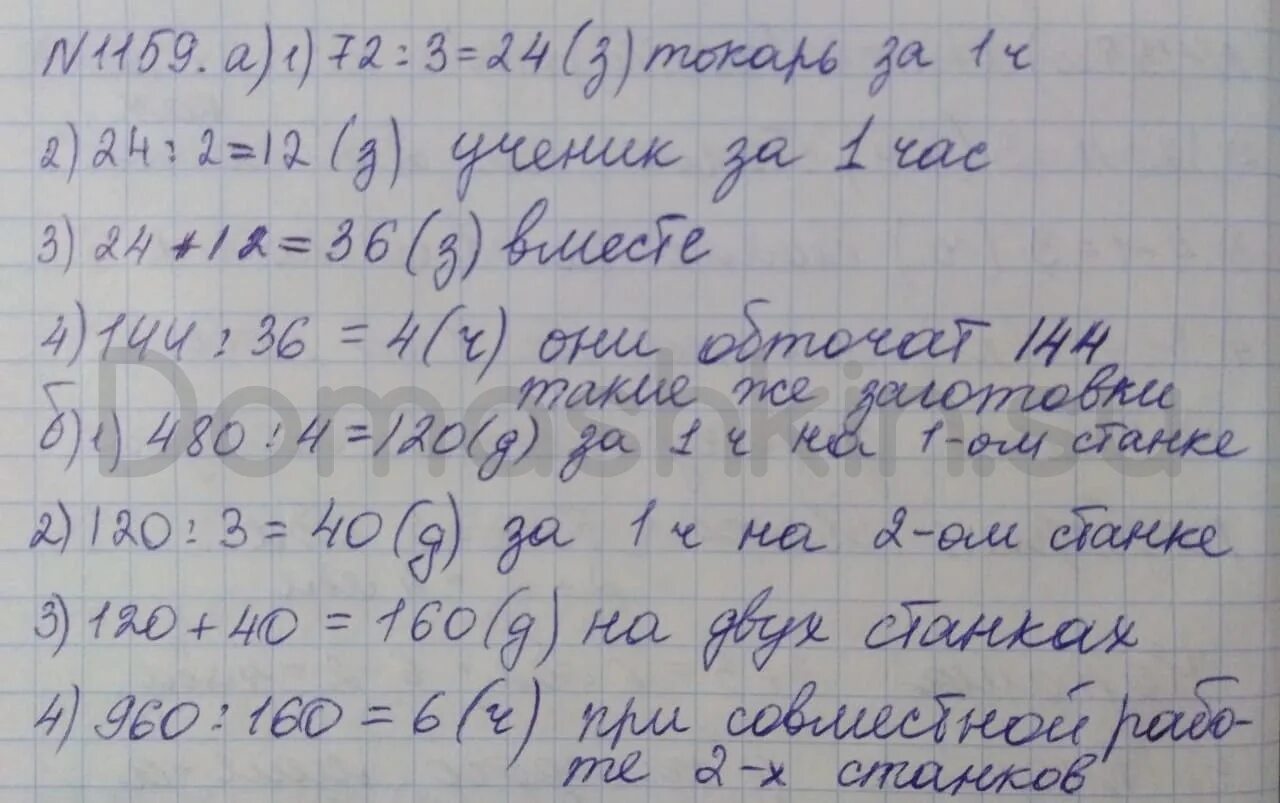 N1159. а) 1) 72 : 3 = 24 (з) токарь за 1 ч
2) 24 : 2 = 12 (з) ученик за 1 час
3) 24 + 12 = 36 (з) вместе
4) 144 : 36 = 4 (ч) они обточат 144
такие же заготовки
б) 1) 480 : 4 = 120 (д) за 1 ч на 1-ом станке
2) 120 : 3 = 40 (д) за 1 ч на 2-ом станке
3) 120 + 40 = 160 (д) на двух станках
4) 960 : 160 = 6 (ч) при совместной рабо-
те 2-х станков
Domashkin.su